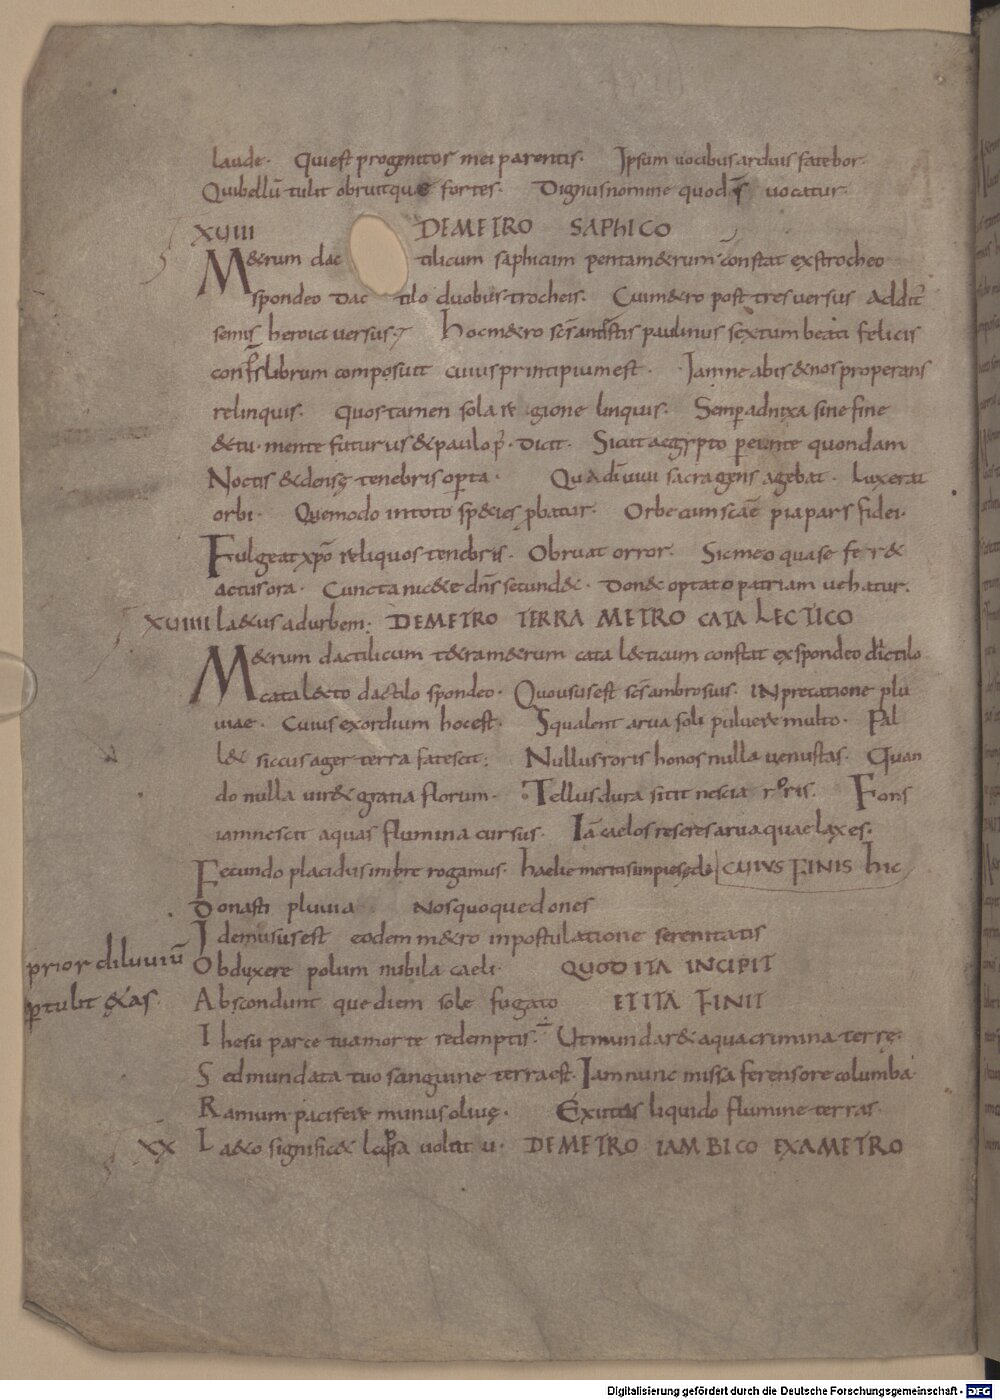 laude. Qui est progenitor mei parentis. Ipsum uocibus arduis fatebor
Qui bellū tulit obruitque fortes. Dignus nomine quod uocatur.
XVIII DE METRO SAPHICO
M&rum dactilicum saphicum pentam&rum constat ex trocheo
spondeo dactilo duobus trocheis. Cui m&ro post tres uersus additr̄
semis heroici uersus. Hoc m&ro scs antistis paulinus sextum beati felicis
confs̄ librum composuit cuius principium est. Iamne abis & nos properans
relinquis. Quos tamen sola regione linquis. Semp adnixa sine fine
& tu. mente futurus & paulo p̄. dicit. Sicut aegypto pereunte quondam
Noctis & densę tenebris opta. Qua diuini sacra gens agebat. Lux erat
orbi. Quemodo in toto species pbatur. Orbe cum scāe pia pars fidei.
Fulgeat xpō reliquos tenebris. Obruat orror. Sic meo quase fer&
actus ora. Cuncta nic&e dns secund&. Don& optato patriam uehatur.
XVIIII La&us ad urbem: DE METRO TETRAMETRO CATALECTICO
M&rum dactilicum t&ram&rum catal&ticum constat ex spondeo dactilo
catal&to dactilo spondeo. Quo usus est scs ambrosius. IN precatione plu
uiae. Cuius exordium hoc est. Squalent arua soli puluere multo. Pal
l& siccus ager terra fatescit: Nullus roris honos nulla uenustas. Quan
do nulla uir& gratia florum. Tellus dura sitit nescia roris. Fons
iam nescit aquas flumina cursus. Iā caelos reseres arua quae laxes.
Fecundo placidus imbre rogamus. haelie meritis impio CUIUS FINIS hic
Donasti pluuia Nos quoque dones
Idem usus est eodem m&ro in postulatione serenitatis
prior diluuiū Obduxere polum nubila caeli. QUOD ITA INCIPIT
ptulit &as. Abscondunt que diem sole fugato ET ITA FINIT
Ihesu parce tua morte redemptis. Ut mundar& aqua crimina terrę.
Sed mundata tuo sanguine terra est. Iam nunc missa ferens ore columba
Ramum pacifere munus oliuę. Exutas liquido flumine terras
XX La&o signific& lapsa uolat u. DE METRO IAMBICO EXAMETRO
Digitalisierung gefördert durch die Deutsche Forschungsgemeinschaft - DFG